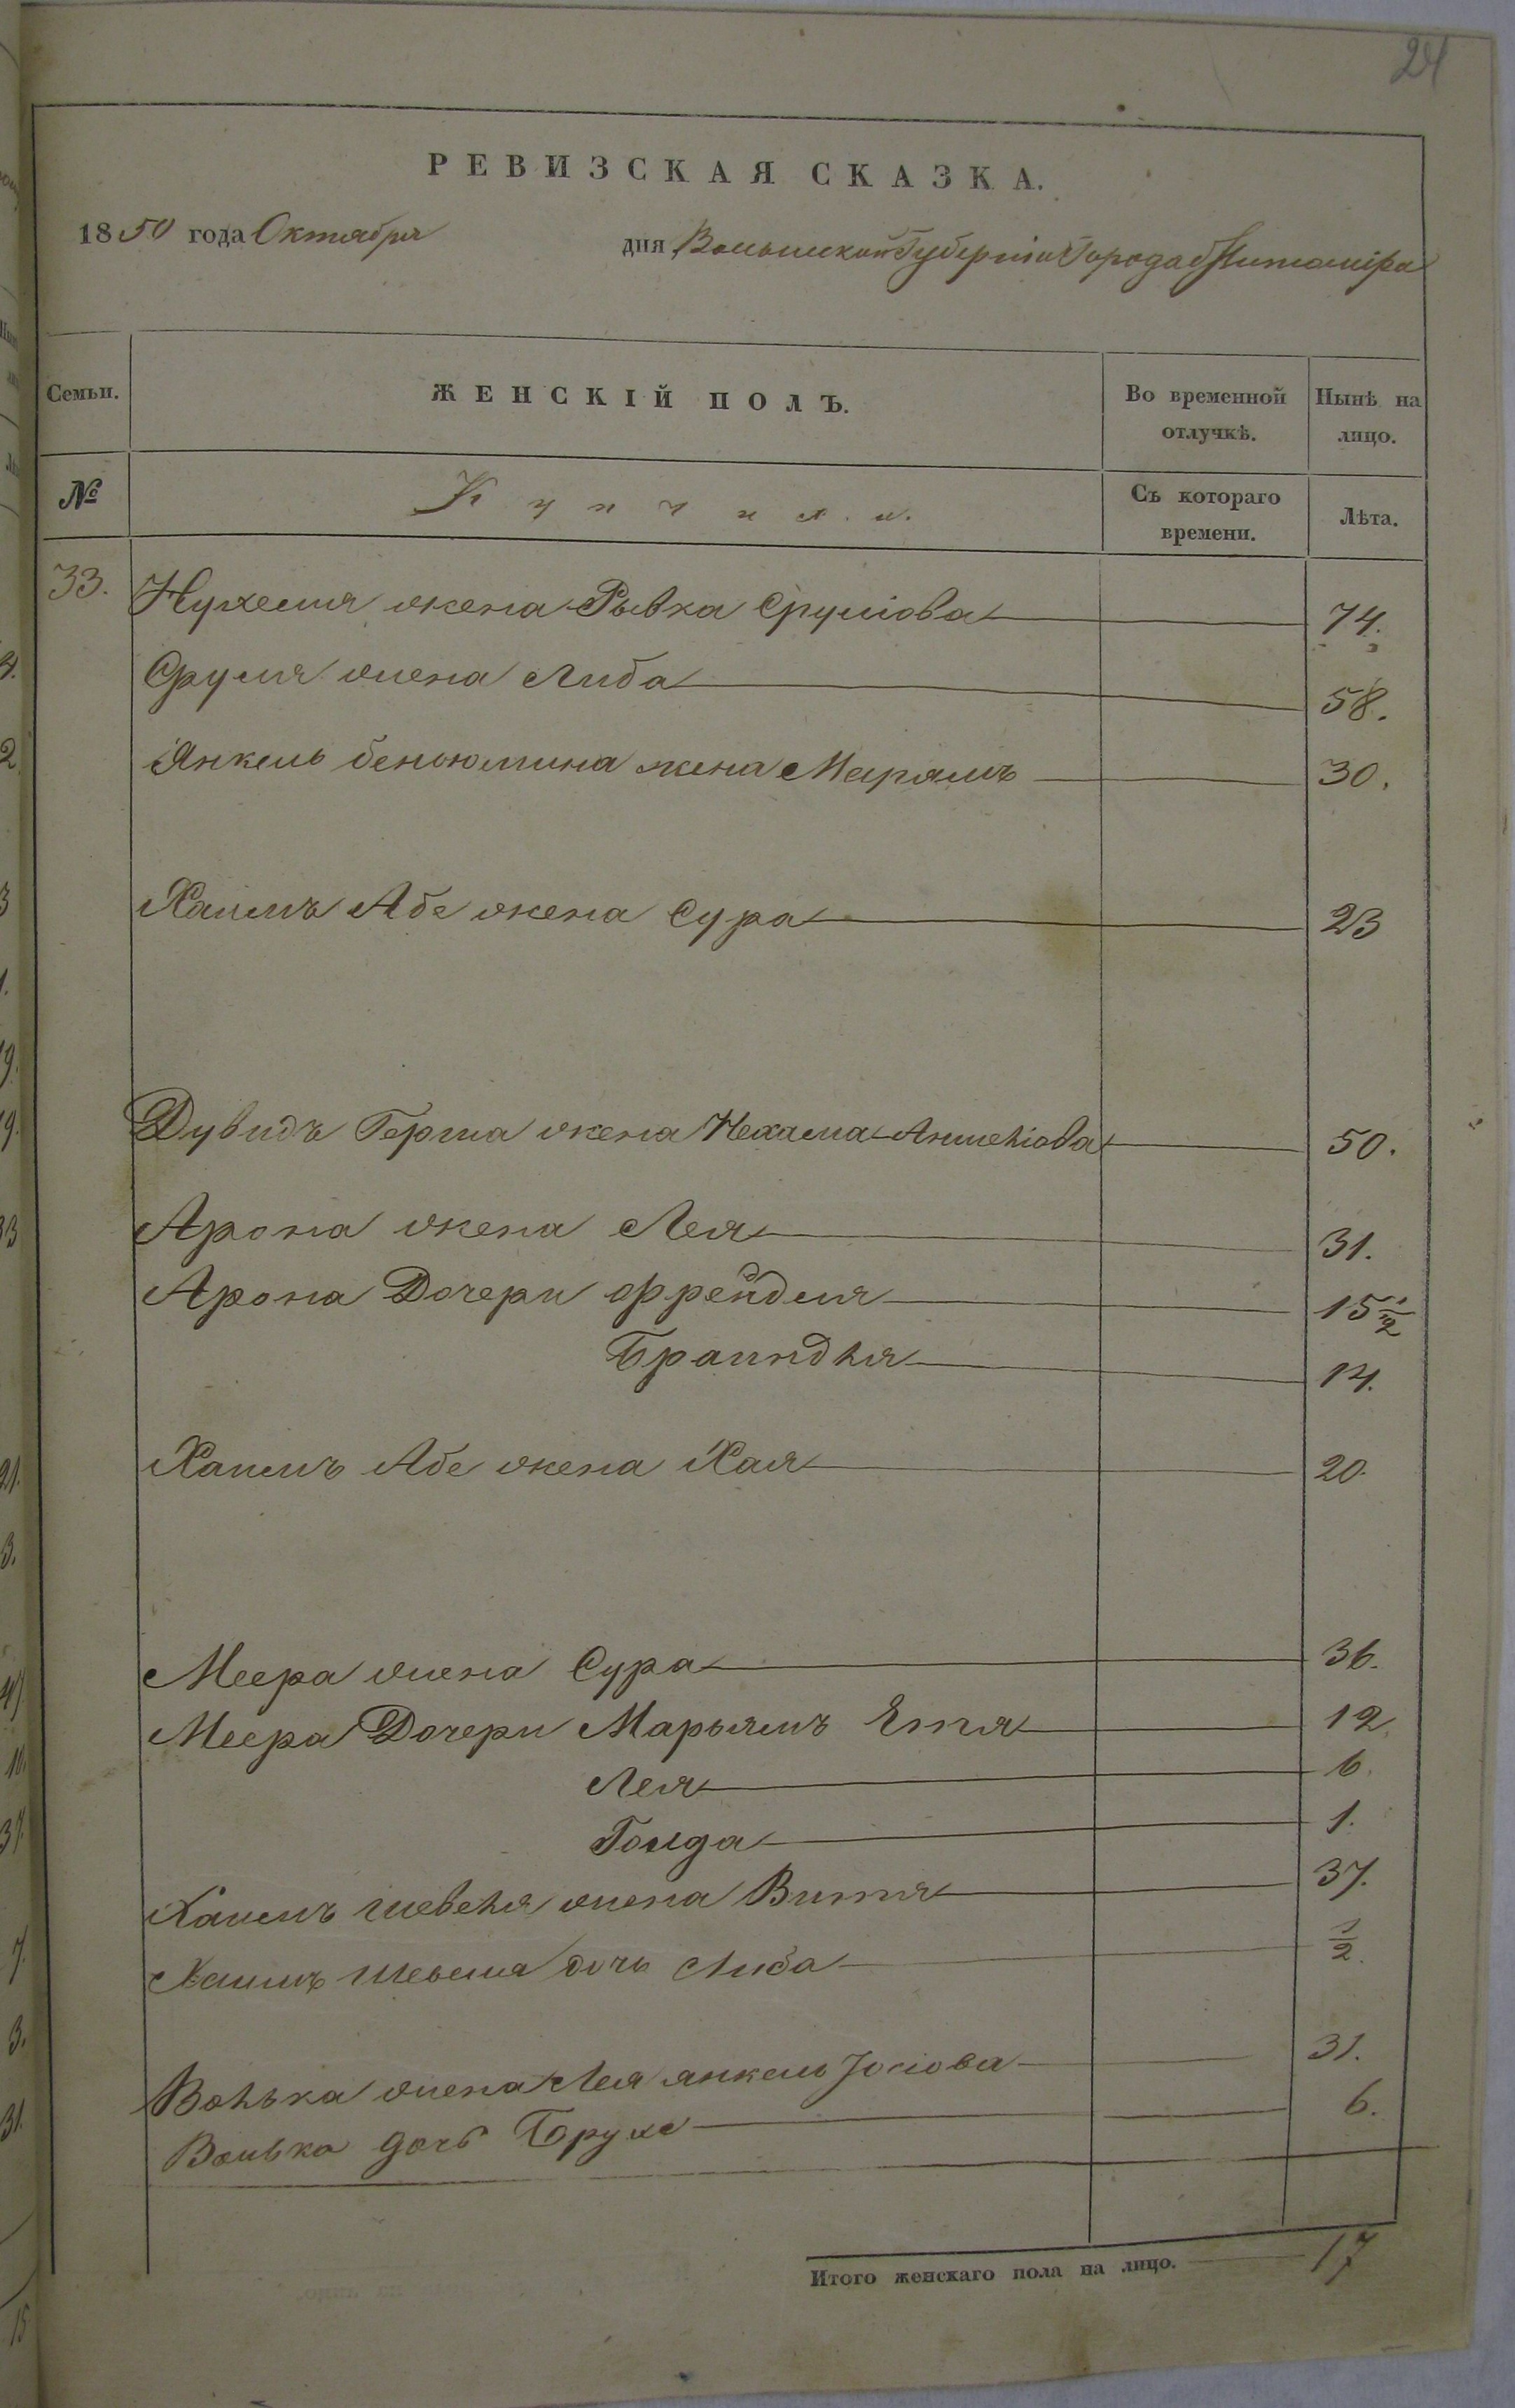 24
РЕВИЗСКАЯ СКАЗКА.
1850 года Октября дня Волынской Губернии Города Житомира
Семьи. ЖЕНСКІЙ ПОЛЪ. Во временной отлучкѣ. Нынѣ на лицо.
№ Съ котораго времени. Лѣта.
33. Нухема жена Рывка Срулiова 74.
Сруля жена Либа 58.
Янкель беньюмина жена Мирямъ 30.
Хаимъ Абе жена Сура 23
Дувидъ Герша жена Нехама Аншелiова 50.
Арона жена Лея 31.
Арона Дочери Фрейдля 15 1/2
Браиндля 14.
Хаимъ Абе жена Хая 20.
Меера жена Сура 36.
Меера Дочери Марьямъ Етя 12.
Лея 6.
Голда 1.
Хаимъ Шевеля жена Витя 37.
Хаимъ Шевеля дочь Либа 1/2.
Волька жена Лея Янкель Іосiова 31.
Волька дочь Брухе 6.
Итого женскаго пола на лицо. 17